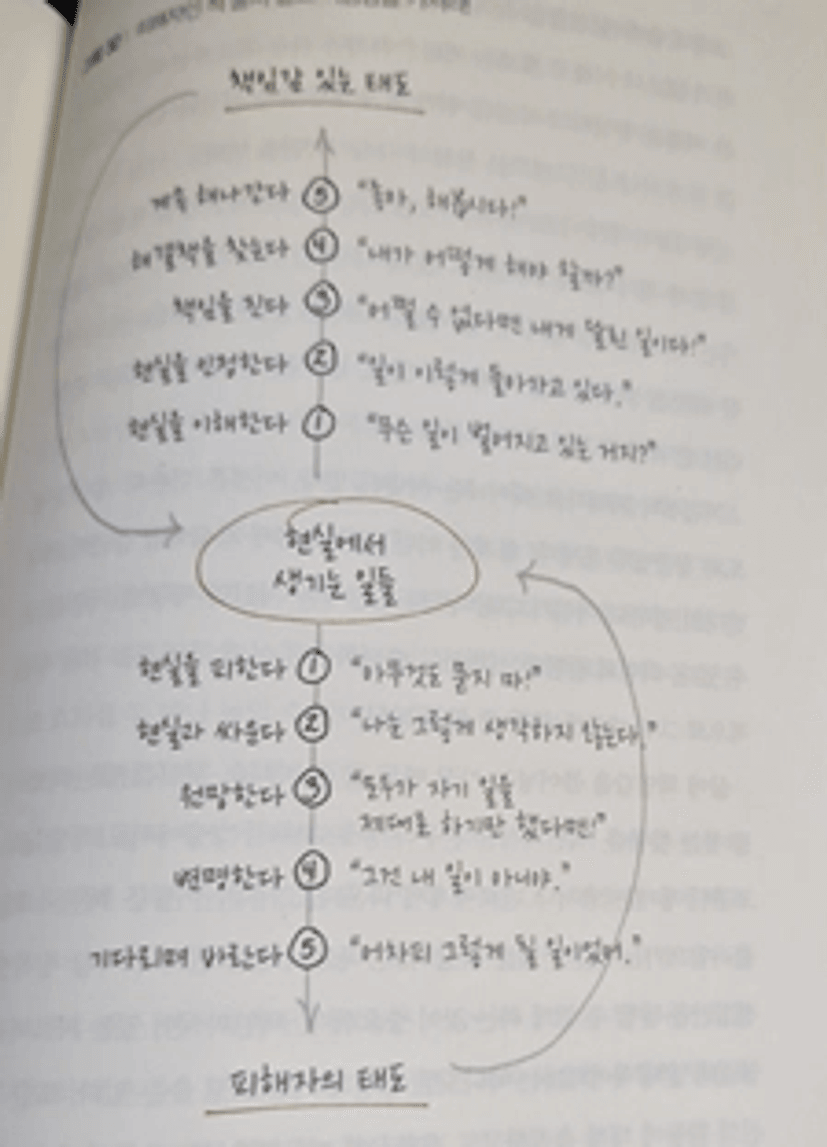 책임감 있는 태도
계속 해나간다 ⑤ "좋아, 해봅시다!"
해결책을 찾는다 ④ "내가 어떻게 해야 할까?"
책임을 진다 ③ "어쩔 수 없다면 내게 달린 일이다!"
현실을 인정한다 ② "일이 이렇게 돌아가고 있다."
현실을 이해한다 ① "무슨 일이 벌어지고 있는 거지?"
현실에서
생기는 일들
현실을 피한다 ① "아무것도 묻지 마!"
현실과 싸운다 ② "나는 그렇게 생각하지 않는다."
원망한다 ③ "모두가 자기 일을
제대로 하기만 했다면!"
변명한다 ④ "그건 내 일이 아니야."
기다리며 바란다 ⑤ "어차피 그렇게 될 일이었어."
피해자의 태도